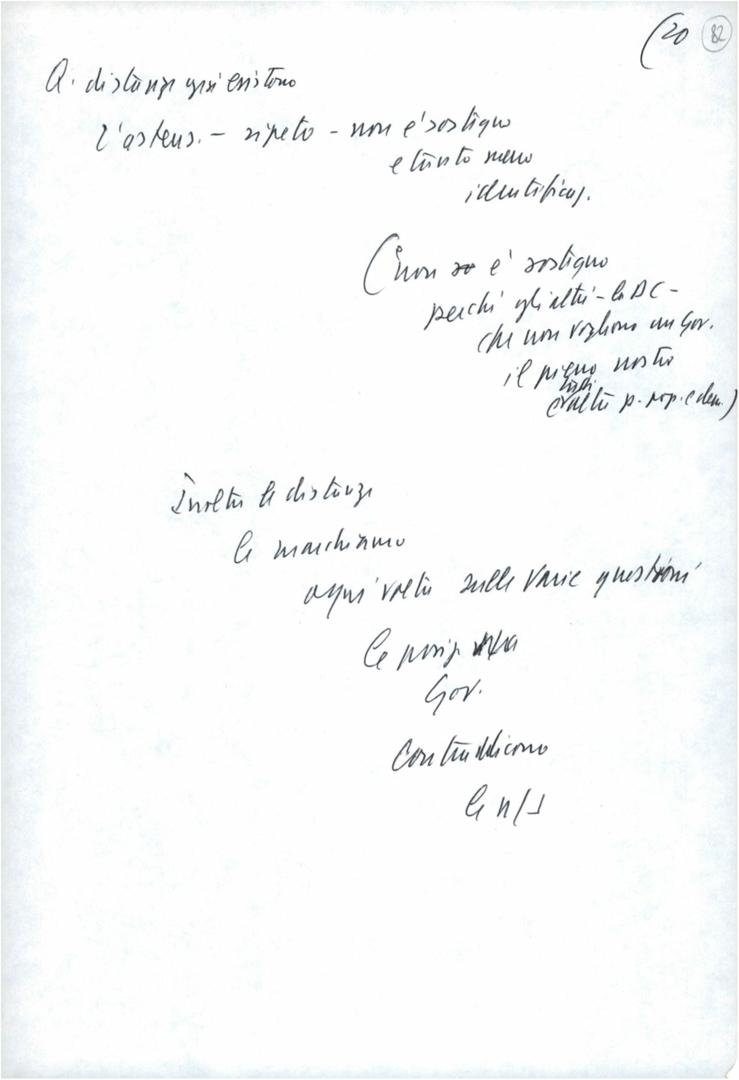 (20 82
Q. distanze già esistono
L'astens. - ripeto - non è sostegno
e tanto meno
identificaz.
(non è sostegno
perché gli altri - la DC -
che non vogliono un Gov.
il pieno nostro
e altri p. pop. e dem.)
Inoltre le distanze
le marchiamo
ogni volta sulle varie questioni
le posiz.
Gov.
contraddicono
le n/s